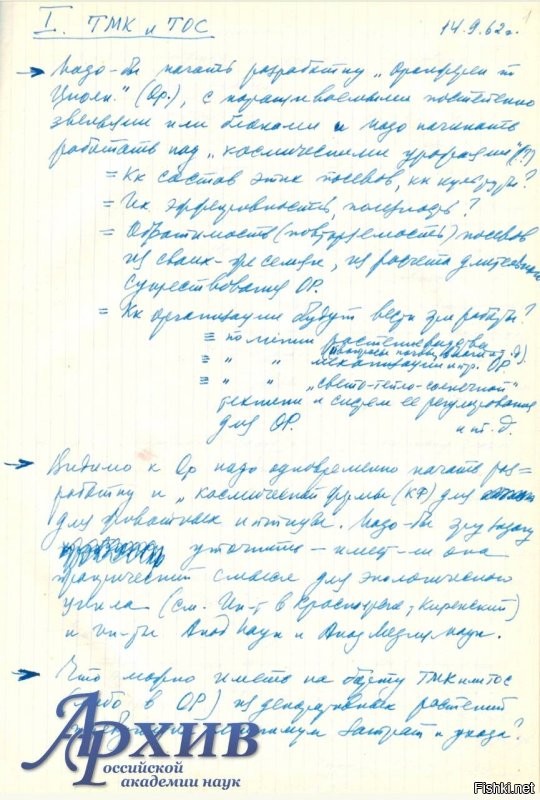 1
I. ТМК и ТОС 14.9.62г.
→ Надо-бы начать разработку „Оранжереи по
Циолк." (Ор.), с наращиваемыми постепенно
звеньями или блоками и надо начинать
работать над „космическими урожаями"(!?)
= Кк состав этих посевов, кк культуры?
= Их эффективность, полезность?
= Обратимость (повторяемость) посевов
из своих-же семян, из расчета длительного
существования ОР.
= Кк организации будут вести эти работы?
≡ по линии растениеводства
(вопросы почвы, влаги и т. д.)
≡ " " механизации и пр. ОР
≡ " " „свето-тепло-солнечной"
техники и систем ее регулирования
для ОР. и т. д.
→ Видимо к Ор надо одновременно начать раз=
работку и „космической фермы (КФ) для
для животных и птицы. Надо-бы эту задачу
уточнить – имеет-ли она
практический смысл для экологического
цикла (см. Ин-т в Красноярске, Киренский)
и ин-ты Акад Наук и Акад Медиц наук.
→ Что можно иметь на борту ТМК или ТОС
(либо в ОР) из декоративных растений
минимум затрат и ухода?
Архив
Российской
академии наук
Fishki.net